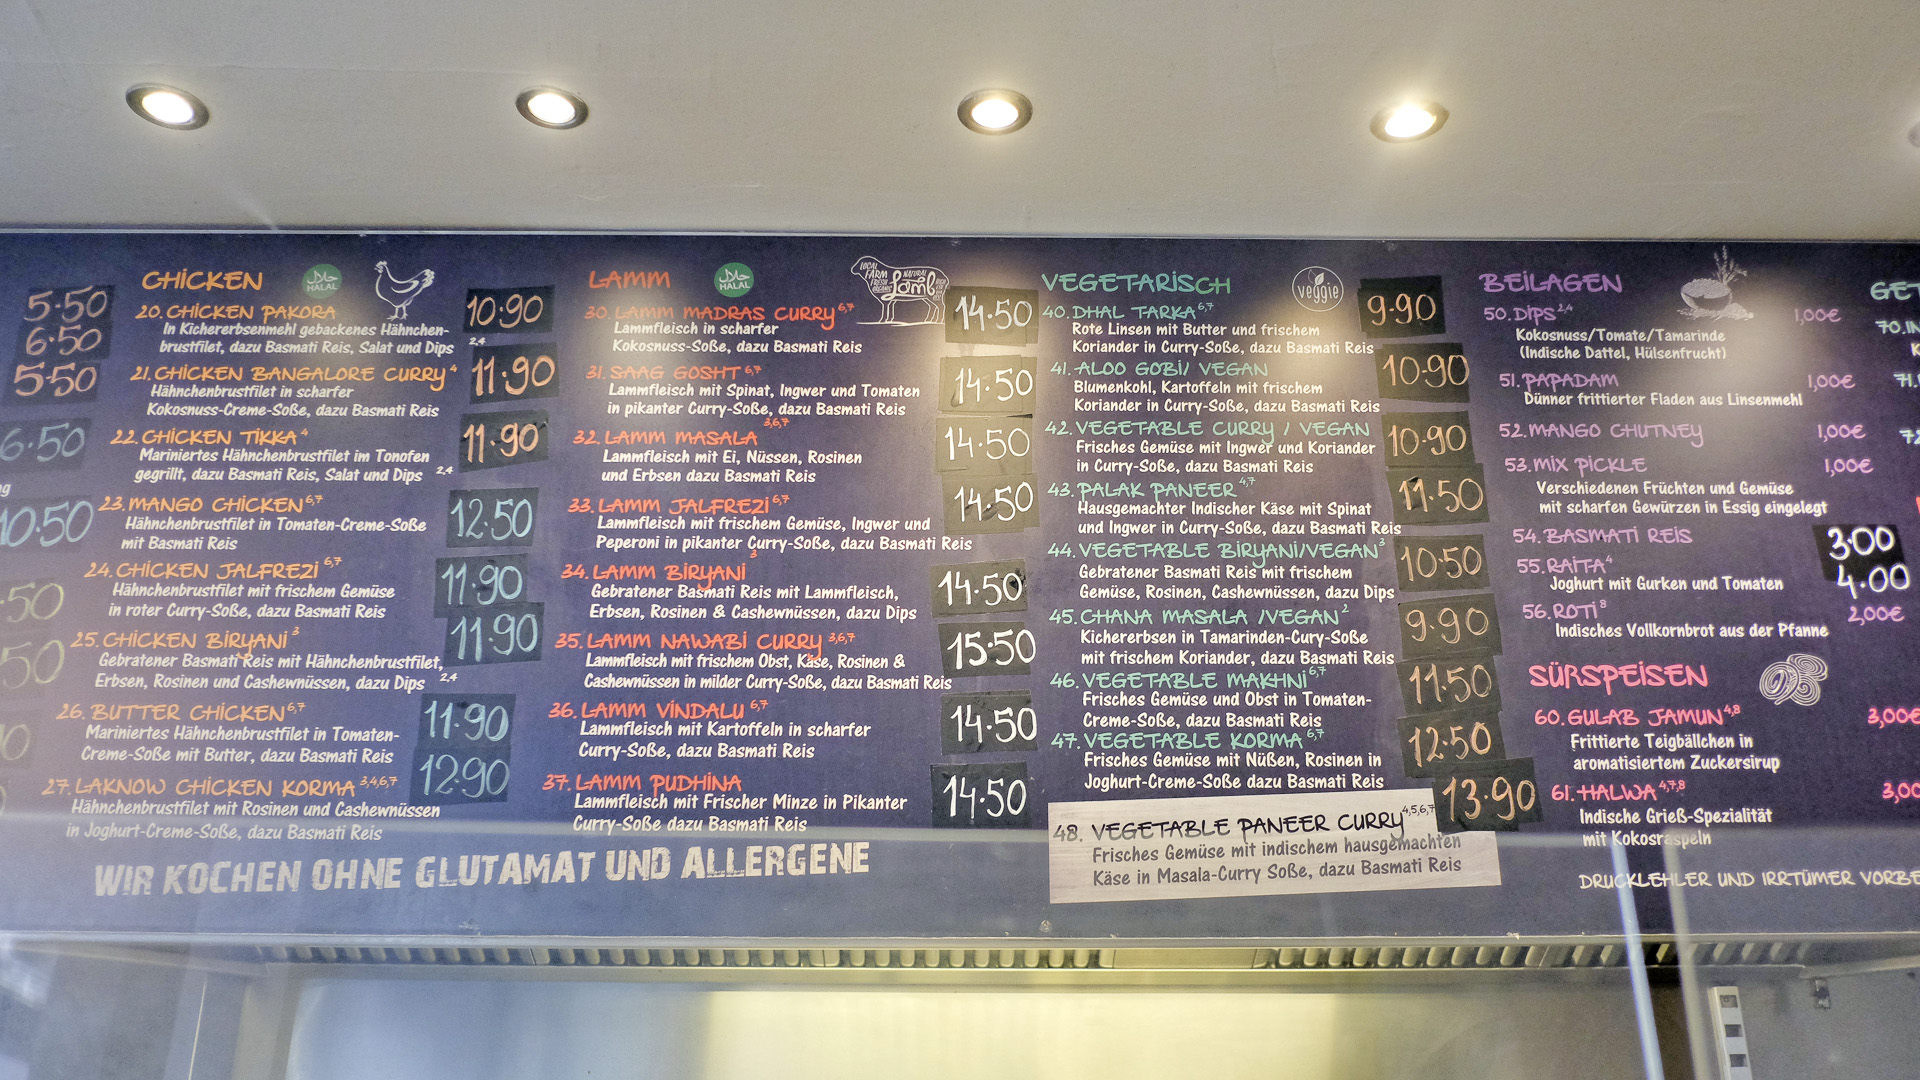 5.50
6.50
5.50
6.50
10.50
CHICKEN
حلال
HALAL
20. CHICKEN PAKORA
10.90
In Kichererbsenmehl gebackenes Hähnchen-
brustfilet, dazu Basmati Reis, Salat und Dips 2,4
21. CHICKEN BANGALORE CURRY 4
11.90
Hähnchenbrustfilet in scharfer
Kokosnuss-Creme-Soße, dazu Basmati Reis
22. CHICKEN TIKKA 4
11.90
Mariniertes Hähnchenbrustfilet im Tonofen
gegrillt, dazu Basmati Reis, Salat und Dips 2,4
23. MANGO CHICKEN 6,7
12.50
Hähnchenbrustfilet in Tomaten-Creme-Soße
mit Basmati Reis
24. CHICKEN JALFREZI 6,7
11.90
Hähnchenbrustfilet mit frischem Gemüse
in roter Curry-Soße, dazu Basmati Reis
25. CHICKEN BIRYANI 3
11.90
Gebratener Basmati Reis mit Hähnchenbrustfilet,
Erbsen, Rosinen und Cashewnüssen, dazu Dips 2,4
26. BUTTER CHICKEN 6,7
11.90
Mariniertes Hähnchenbrustfilet in Tomaten-
Creme-Soße mit Butter, dazu Basmati Reis
27. LAKNOW CHICKEN KORMA 3,4,6,7
12.90
Hähnchenbrustfilet mit Rosinen und Cashewnüssen
in Joghurt-Creme-Soße, dazu Basmati Reis
WIR KOCHEN OHNE GLUTAMAT UND ALLERGENE
LAMM
حلال
HALAL
LOCAL
FARM
FRESH
NATURAL
Lamb
30. LAMM MADRAS CURRY 6,7
14.50
Lammfleisch in scharfer
Kokosnuss-Soße, dazu Basmati Reis
31. SAAG GOSHT 6,7
14.50
Lammfleisch mit Spinat, Ingwer und Tomaten
in pikanter Curry-Soße, dazu Basmati Reis
32. LAMM MASALA 3,6,7
14.50
Lammfleisch mit Ei, Nüssen, Rosinen
und Erbsen dazu Basmati Reis
33. LAMM JALFREZI 6,7
14.50
Lammfleisch mit frischem Gemüse, Ingwer und
Peperoni in pikanter Curry-Soße, dazu Basmati Reis
34. LAMM BIRYANI 3
14.50
Gebratener Basmati Reis mit Lammfleisch,
Erbsen, Rosinen & Cashewnüssen, dazu Dips
35. LAMM NAWABI CURRY 3,6,7
15.50
Lammfleisch mit frischem Obst, Käse, Rosinen &
Cashewnüssen in milder Curry-Soße, dazu Basmati Reis
36. LAMM VINDALU 6,7
14.50
Lammfleisch mit Kartoffeln in scharfer
Curry-Soße, dazu Basmati Reis
37. LAMM PUDHINA
14.50
Lammfleisch mit Frischer Minze in Pikanter
Curry-Soße, dazu Basmati Reis
VEGETARISCH
veggie
40. DHAL TARKA 6,7
9.90
Rote Linsen mit Butter und frischem
Koriander in Curry-Soße, dazu Basmati Reis
41. ALOO GOBI/ VEGAN
10.90
Blumenkohl, Kartoffeln mit frischem
Koriander in Curry-Soße, dazu Basmati Reis
42. VEGETABLE CURRY / VEGAN
10.90
Frisches Gemüse mit Ingwer und Koriander
in Curry-Soße, dazu Basmati Reis
43. PALAK PANEER 4,7
11.50
Hausgemachter Indischer Käse mit Spinat
und Ingwer in Curry-Soße, dazu Basmati Reis
44. VEGETABLE BIRYANI/VEGAN 3
10.50
Gebratener Basmati Reis mit frischem
Gemüse, Rosinen, Cashewnüssen, dazu Dips
45. CHANA MASALA /VEGAN 2
9.90
Kichererbsen in Tamarinden-Cury-Soße
mit frischem Koriander, dazu Basmati Reis
46. VEGETABLE MAKHNI 6,7
11.50
Frisches Gemüse und Obst in Tomaten-
Creme-Soße, dazu Basmati Reis
47. VEGETABLE KORMA 6,7
12.50
Frisches Gemüse mit Nüßen, Rosinen in
Joghurt-Creme-Soße dazu Basmati Reis
48. VEGETABLE PANEER CURRY 4,5,6,7
13.90
Frisches Gemüse mit indischem hausgemachten
Käse in Masala-Curry Soße, dazu Basmati Reis
BEILAGEN
50. DIPS 2,4 1,00€
Kokosnuss/Tomate/Tamarinde
(Indische Dattel, Hülsenfrucht)
51. PAPADAM 1,00€
Dünner frittierter Fladen aus Linsenmehl
52. MANGO CHUTNEY 1,00€
53. MIX PICKLE 1,00€
Verschiedenen Früchten und Gemüse
mit scharfen Gewürzen in Essig eingelegt
54. BASMATI REIS 3.00
55. RAITA 4 4.00
Joghurt mit Gurken und Tomaten
56. ROTI 8 2,00€
Indisches Vollkornbrot aus der Pfanne
SÜRSPEISEN
60. GULAB JAMUN 4,8 3,00€
Frittierte Teigbällchen in
aromatisiertem Zuckersirup
61. HALWA 4,7,8 3,00
Indische Grieß-Spezialität
mit Kokosraspeln
DRUCKLEHLER UND IRRTÜMER VORBE
GET
70. IN
71.
72